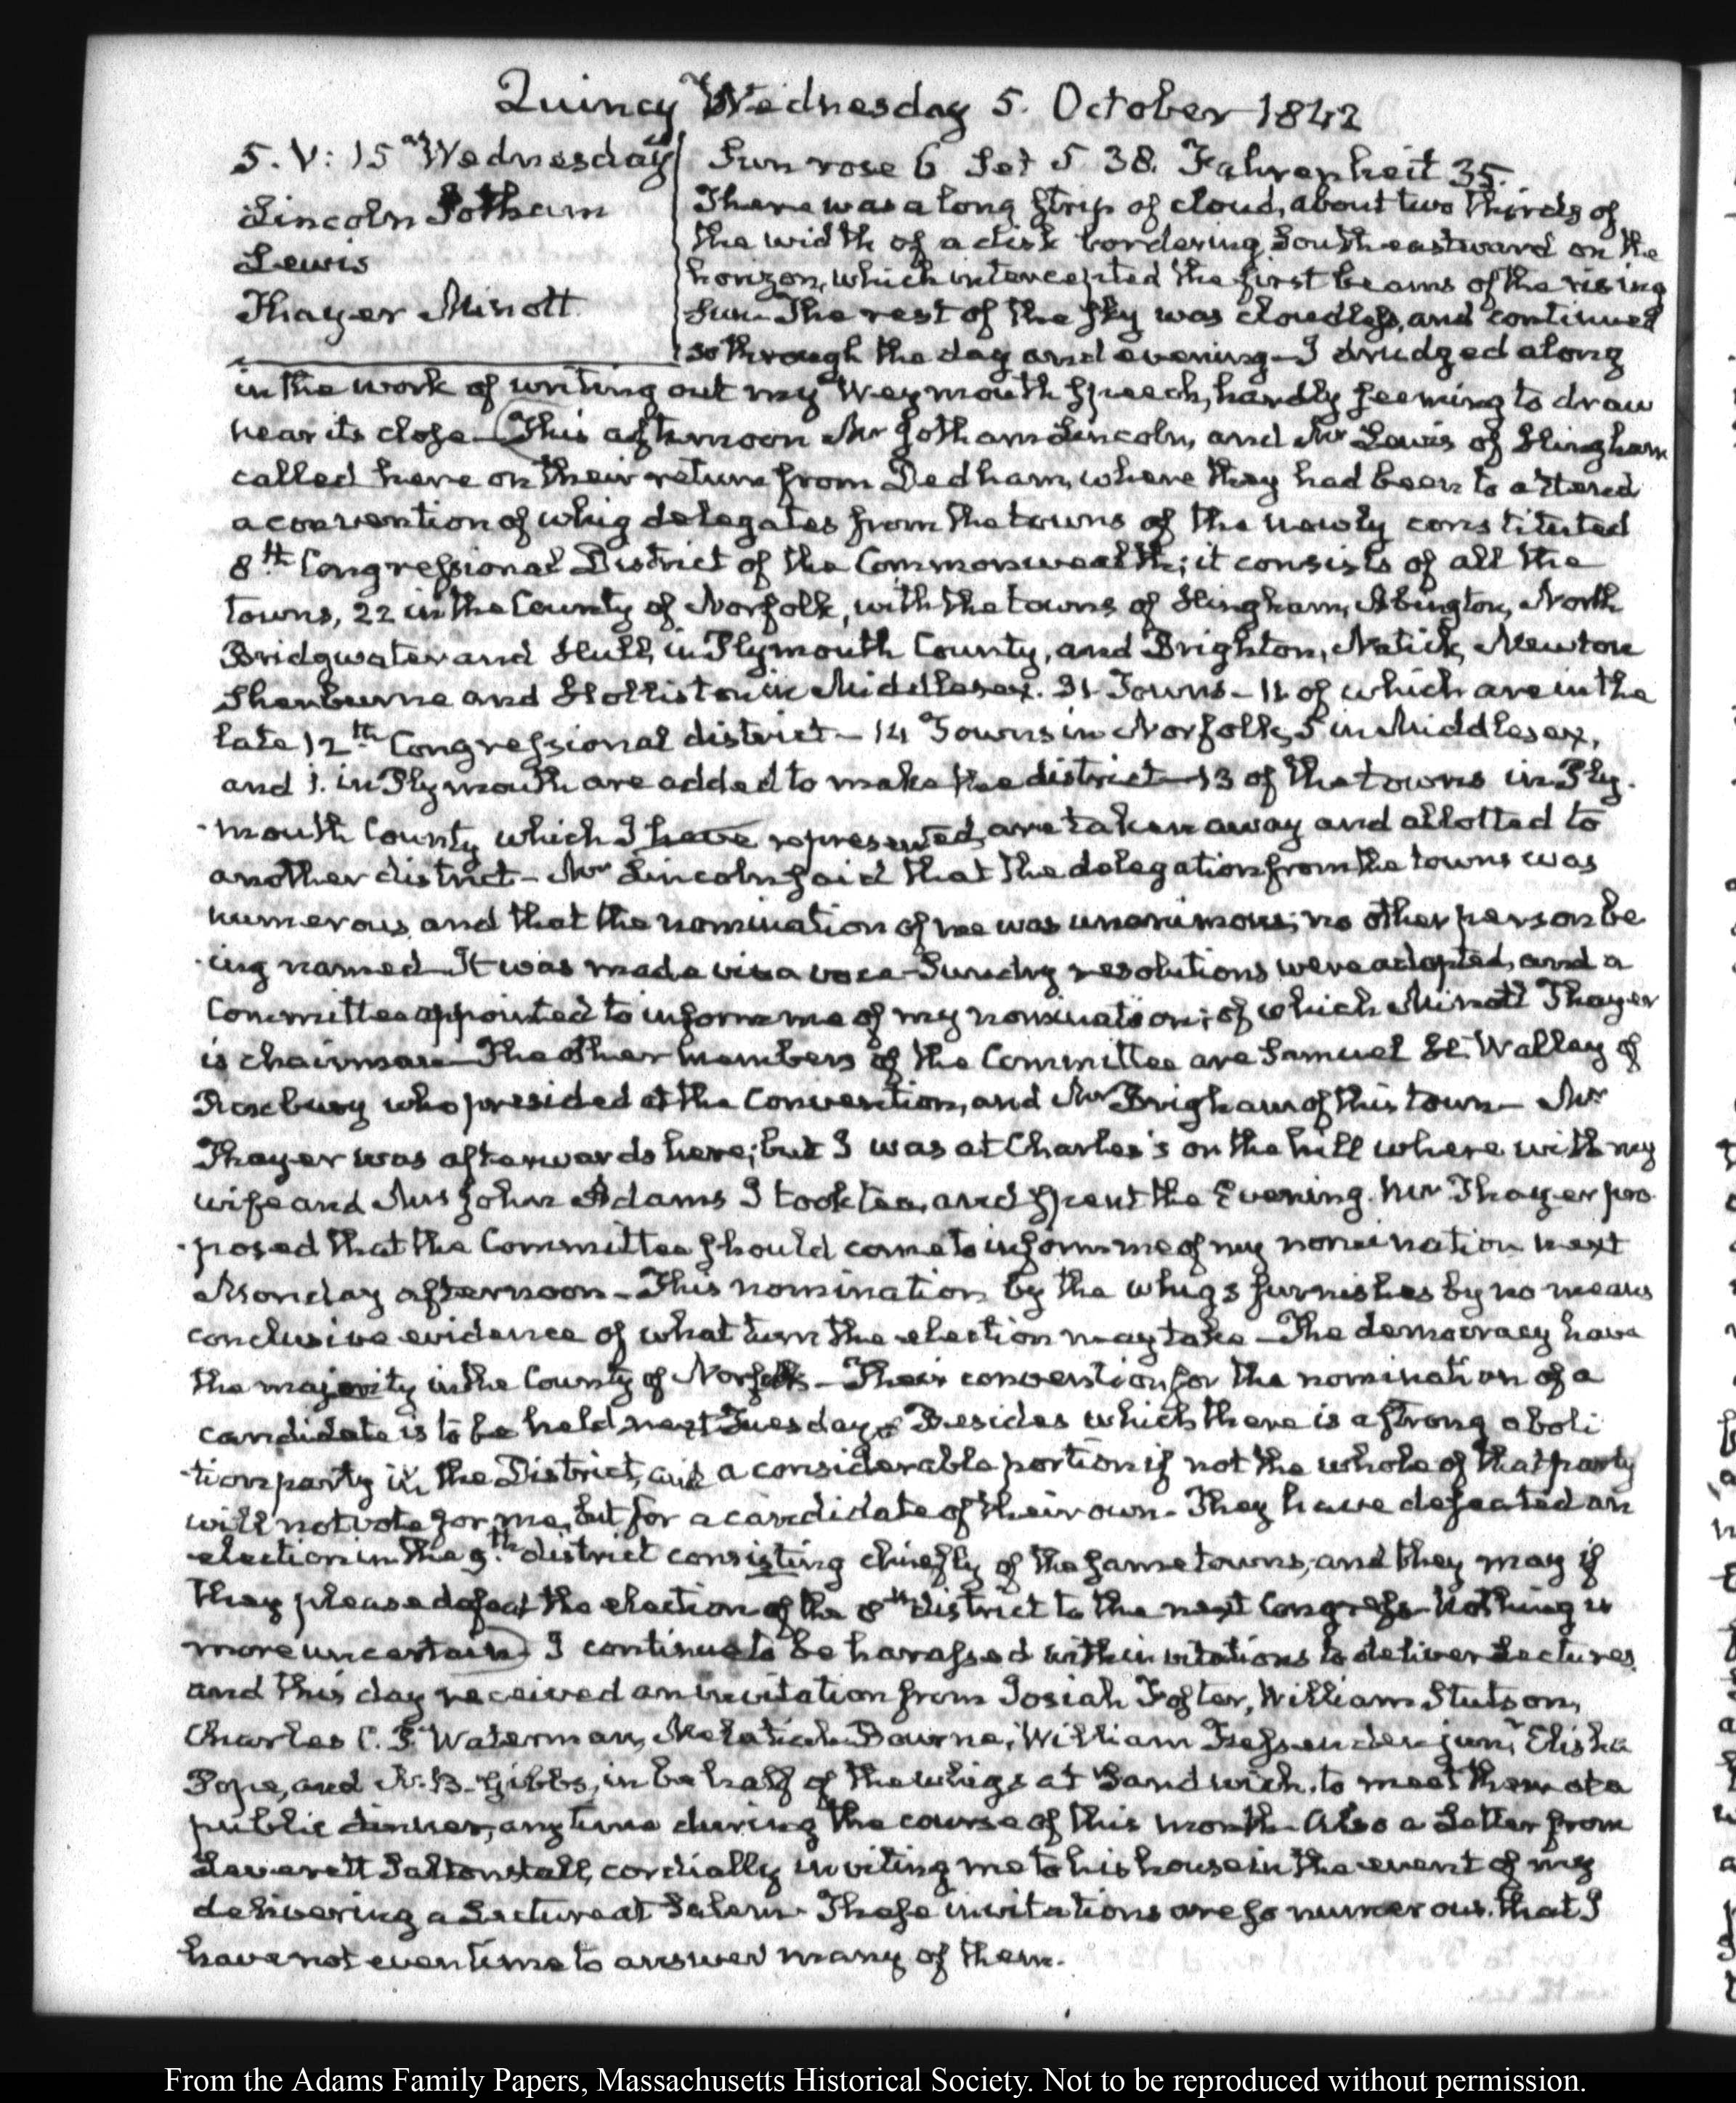 Quincy Wednesday 5. October 1842
5. V: 15 Wednesday
Lincoln Jotham
Lewis
Thayer Minott
Sun rose 6 Set 5 38. Fahrenheit 35.
There was a long strip of cloud, about two thirds of
the width of a disk bordering South eastward on the
horizon, which intercepted the first beams of the rising
Sun. The rest of the sky was cloudless, and continued
so through the day and evening—I drudged along
in the work of writing out my Weymouth speech, hardly seeming to draw
near its close—This afternoon Mr Jotham Lincoln, and Mr Lewis of Hingham
called here on their return from Dedham, where they had been to attend
a convention of whig delegates from the towns of the newly constituted
8th Congressional District of the Commonwealth; it consists of all the
towns, 22 in the County of Norfolk, with the towns of Hingham, Abington, North
Bridgwater and Hull, in Plymouth County, and Brighton, Natick, Newton
Sherburne and Holliston in Middlesex. 31 Towns—11 of which are in the
late 12th Congressional district—14 Towns in Norfolk, 5 in Middlesex,
and 1. in Plymouth are added to make the district—13 of the towns in Ply-
-mouth County which I have represented, are taken away and allotted to
another district—Mr Lincoln said that the delegation from the towns was
numerous, and that the nomination of me was unanimous; no other person be
-ing named—It was made viva voce—Sundry resolutions were adopted, and a
Committee appointed to inform me of my nomination; of which Minott Thayer
is chairman—The other members of the Committee are Samuel H. Walley of
Roxbury who presided at the Convention, and Mr Brigham of this town—Mr
Thayer was afterwards here; but I was at Charles's on the hill where with my
wife and Mrs John Adams I took tea, and spent the Evening. Mr Thayer pro
-posed that the Committee should come to inform me of my nomination next
Monday afternoon—This nomination by the whigs furnishes by no means
conclusive evidence of what turn the election may take—The democracy have
the majority in the County of Norfolk—Their convention for the nomination of a
candidate is to be held next Tuesday. Besides which there is a strong aboli
-tion party in the District, and a considerable portion if not the whole of that party
will not vote for me, but for a candidate of their own—They have defeated an
election in the 9th district consisting chiefly of the same towns, and they may if
they please defeat the election of the 8th district to the next Congress—Nothing is
more uncertain—I continue to be harassed with invitations to deliver Lectures
and this day received an invitation from Josiah Foster, William Stutson,
Charles C. P. Waterman, Melatiah Bourne, William Fessenden junr, Elisha
Pope, and N. B. Gibbs, in behalf of the whigs at Sandwich, to meet them at a
public dinner, any time during the course of this month—Also a Letter from
Leverett Saltonstall, cordially inviting me to his house in the event of my
delivering a Lecture at Salem—These invitations are so numerous that I
have not even time to answer many of them.
From the Adams Family Papers, Massachusetts Historical Society. Not to be reproduced without permission.